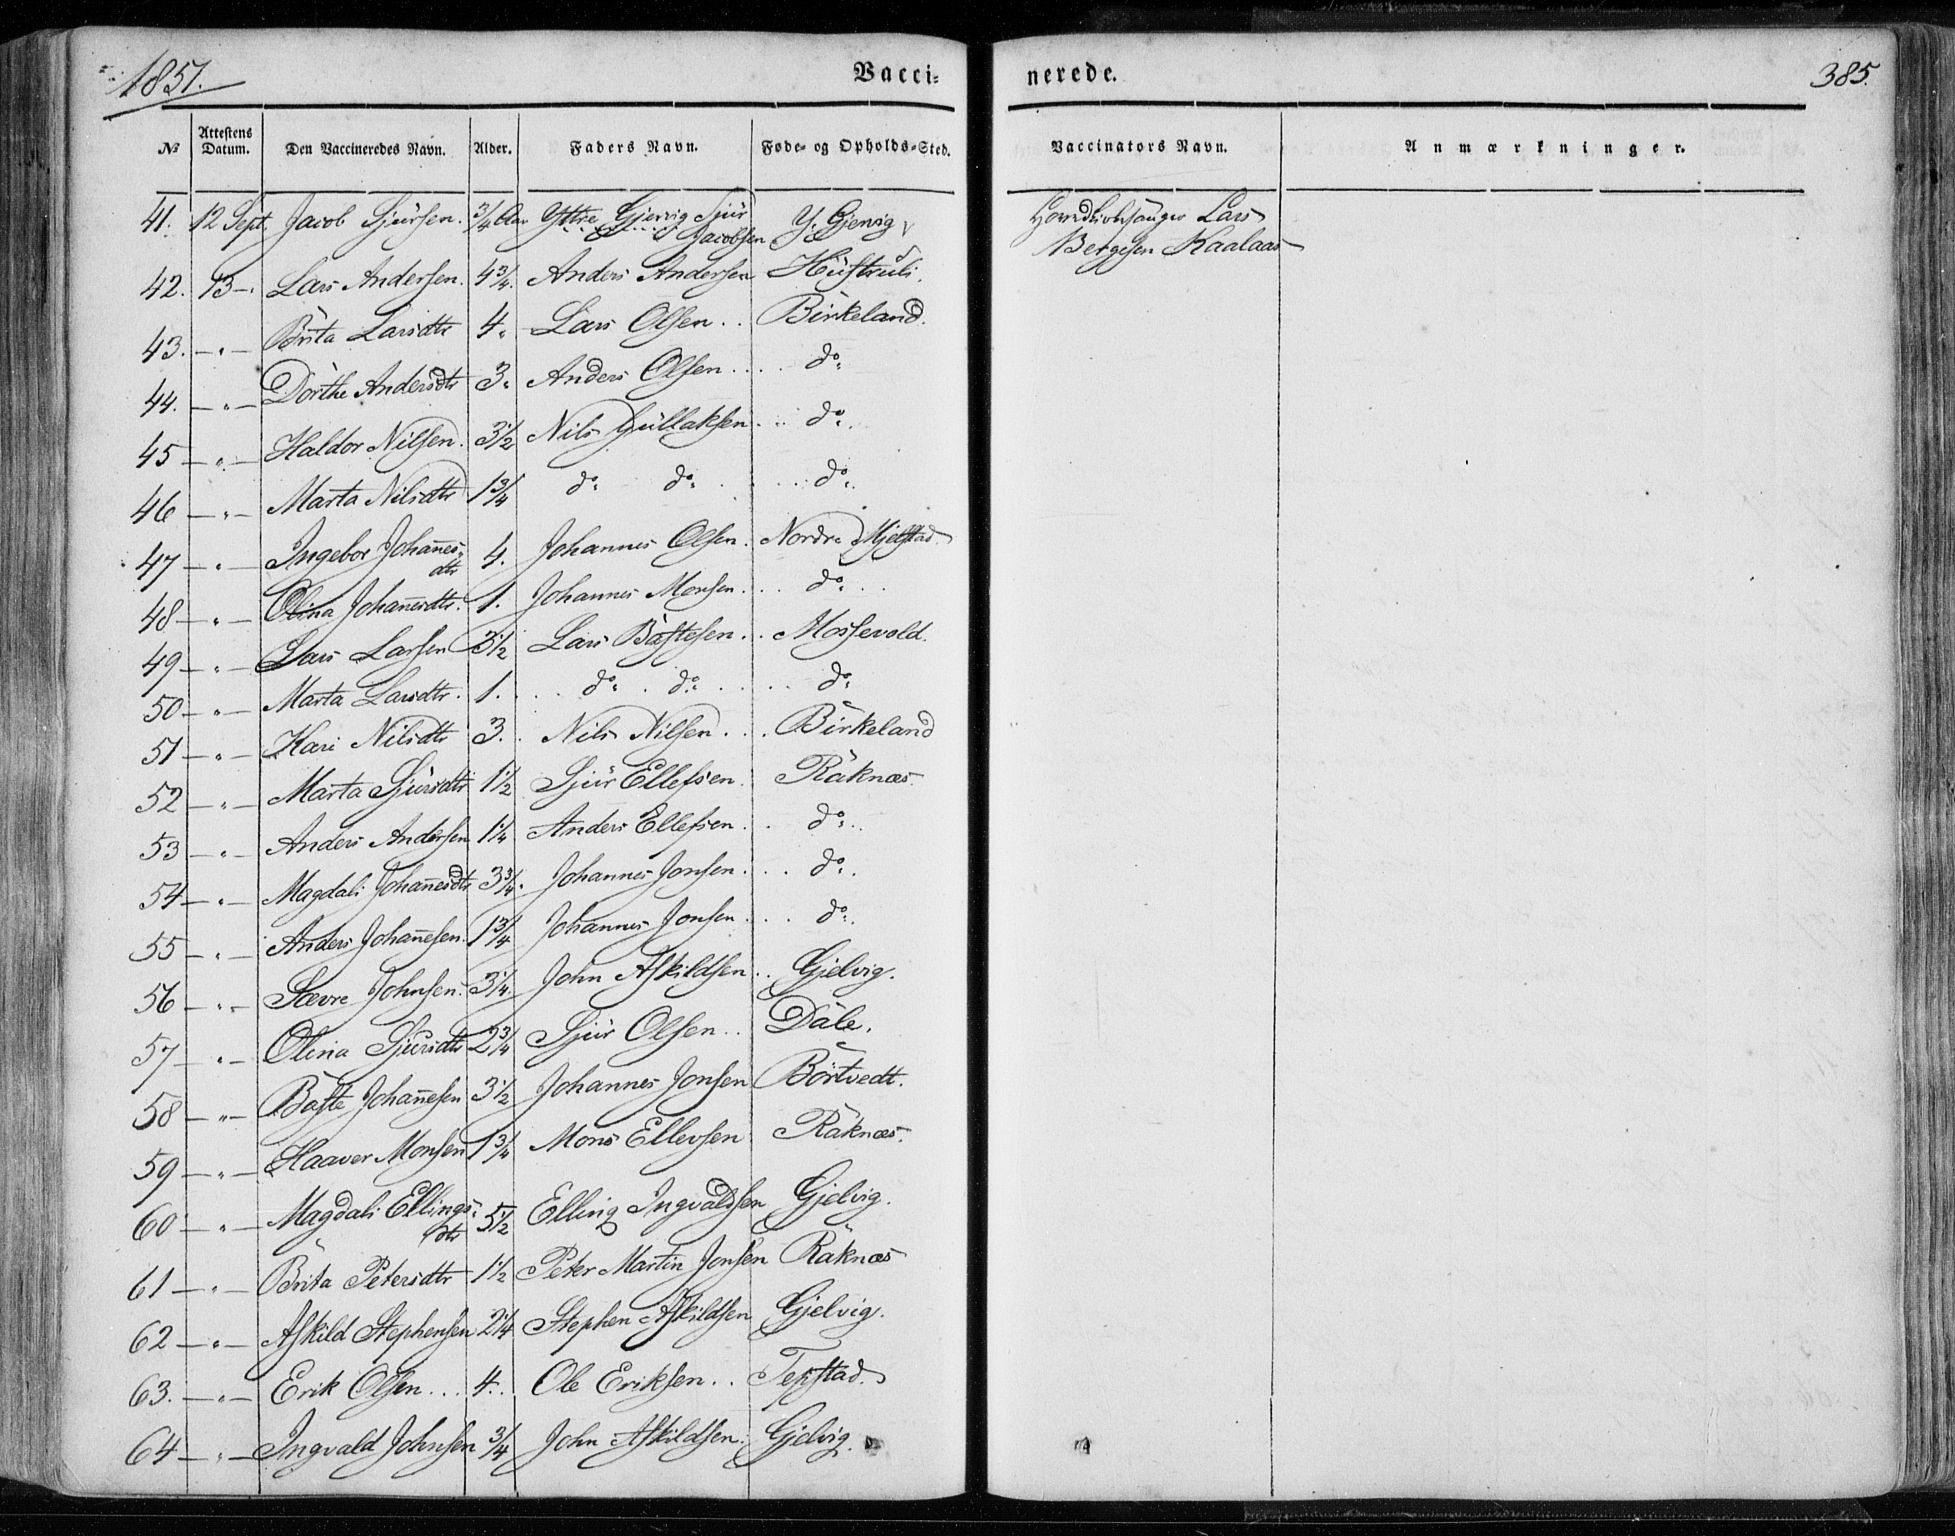 1851.
Vacci-
nerede.
385.
№ Attestens Datum. Den Vaccineredes Navn. Alder. Faders Navn. Føde- og Opholds-Sted. Vaccinators Navn. Anmærkninger.
41. 12 Sept. Jacob Sjursen. 3/4 Aar Yttre Gjervig Sjur Jacobsen Y. Gjervig Lars
Bergesen Kaalaas
42. 13 - Lars Andersen. 4 3/4. Anders Andersen
43. - " - Brita Larsdtr 4. Lars Olsen . . Birkeland.
44. - " - Dorthe Andersdtr 3. Anders Olsen . . . . do.
45 - " - Haldor Nilsen. 3 1/2 Nils Gullaksen . . . do.
46 - " - Marta Nilsdtr 1 3/4 do. do. . . . do.
47 - " - Ingebor Johan̄es-
dtr 4. Johannes Olsen. Nordre Mjelstad
48 - " - Olina Johan̄esdtr. 1. Johannes Monsen . . . do. . .
49 - " - Lars Larsen 3 1/2 Lars Båstesen. . Mossevold.
50 - " - Marta Larsdtr. 1. . . do. . do. . . . do.
51 - " - Kari Nilsdtr 3. . Nils Nilsen . . . Birkeland
52 - " - Marta Sjursdtr 1 1/2 Sjur Ellefsen. Raknæs.
53 - " - Anders Andersen 1 1/4 Anders Ellefsen. . do. . .
54 - " - Magdali Johan̄esdtr 3 3/4. Johannes Jonsen. . . do. .
55 - " - Anders Johan̄esen. 1 3/4 Johannes Jonsen. . . do. .
56 - " - Sævre Johnsen. 3 1/4. John Askildsen . . Gjelvig.
57 - " - Olina Sjursdtr 2 3/4 Sjur Olsen . . Dale.
58 - " - Baste Johan̄esen 3 1/2 Johannes Jonsen Börtvedt.
59 - " - Haaver Monsen 1 3/4 Mons Ellevsen Raknæs.
60 - " - Magdali Ellings-
dtr 5 1/2 Elling Ingvaldsen Gjelvig.
61 - " - Brita Petersdtr 1 1/2 Peter Martin Jonsen Raknæs
62 - " - Askild Stephensen 2 1/4 Stephen Askildsen Gjelvig.
63. - " - Erik Olsen . . . 4. . Ole Eriksen . . Tepstad.
64 - " - Ingvald Johnsen 3/4 John Askildsen. Gjelvig.